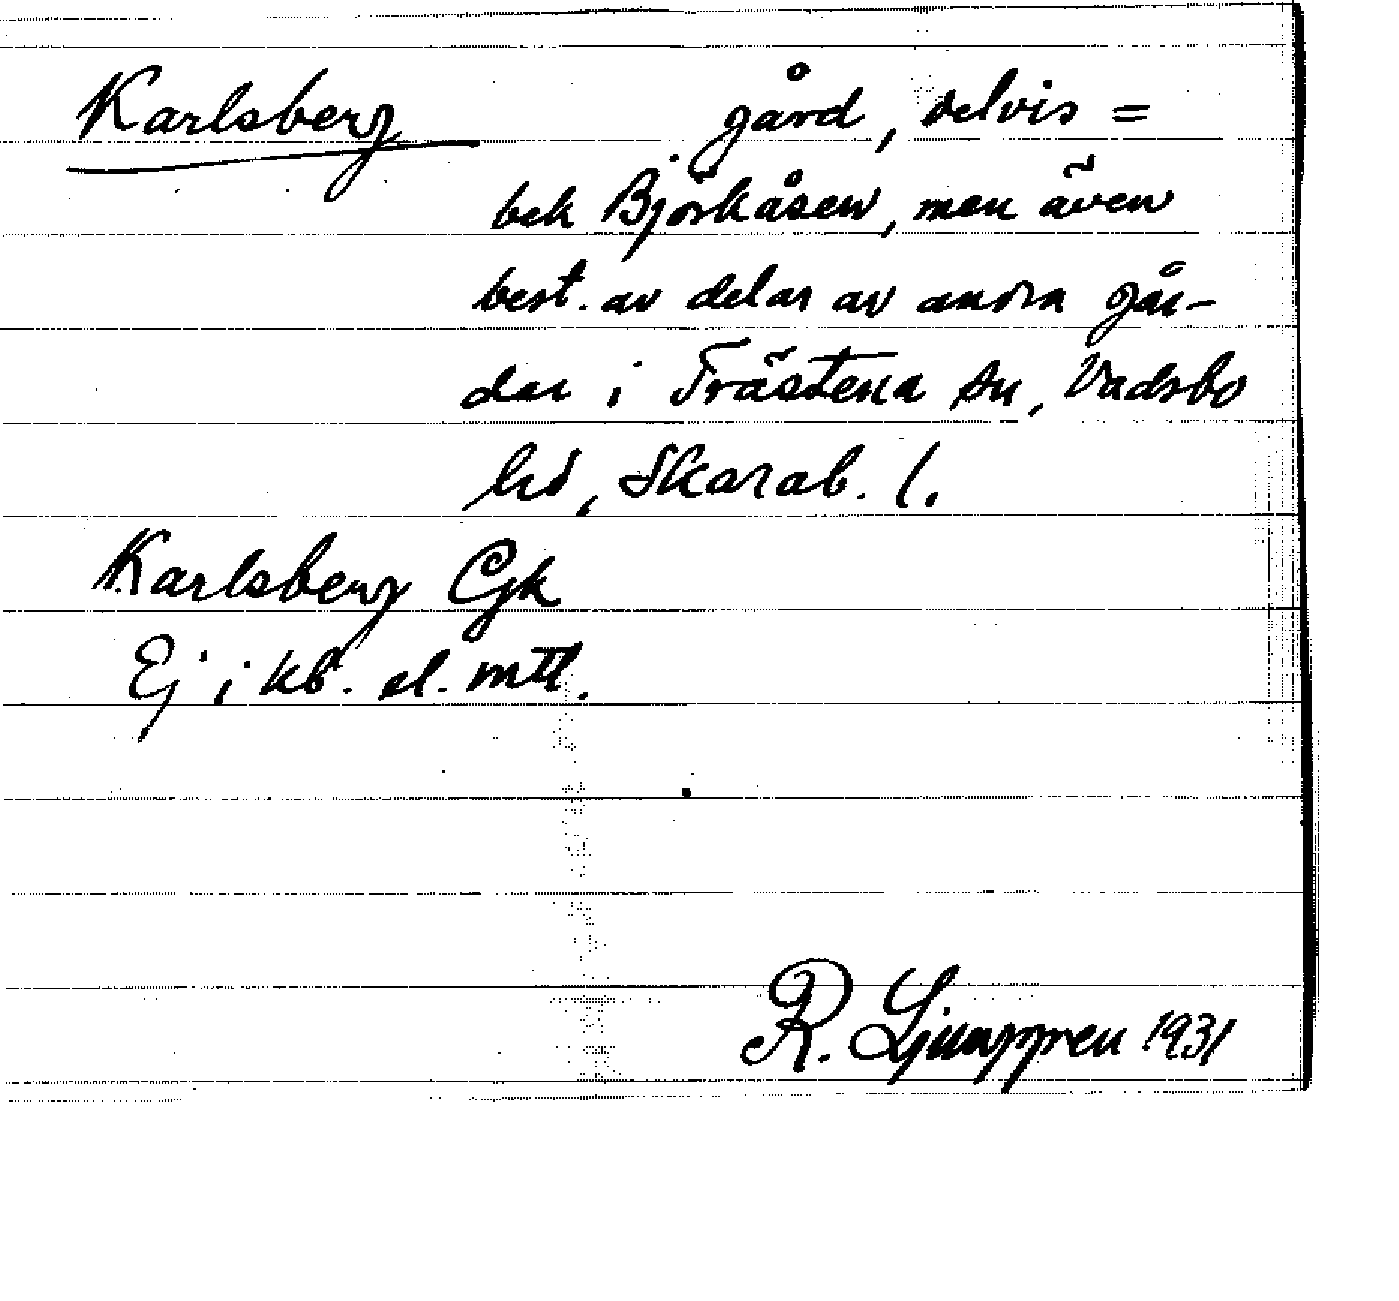 Karlsberg gård, delvis =
bek Björkåsen, men även
best. av delar av andra går-
dar i Trästena sn, Vadsbo
hd, Skarab. l.
Karlsberg Gk
Ej i kb. el. mtl.
R. Ljunggren 1931